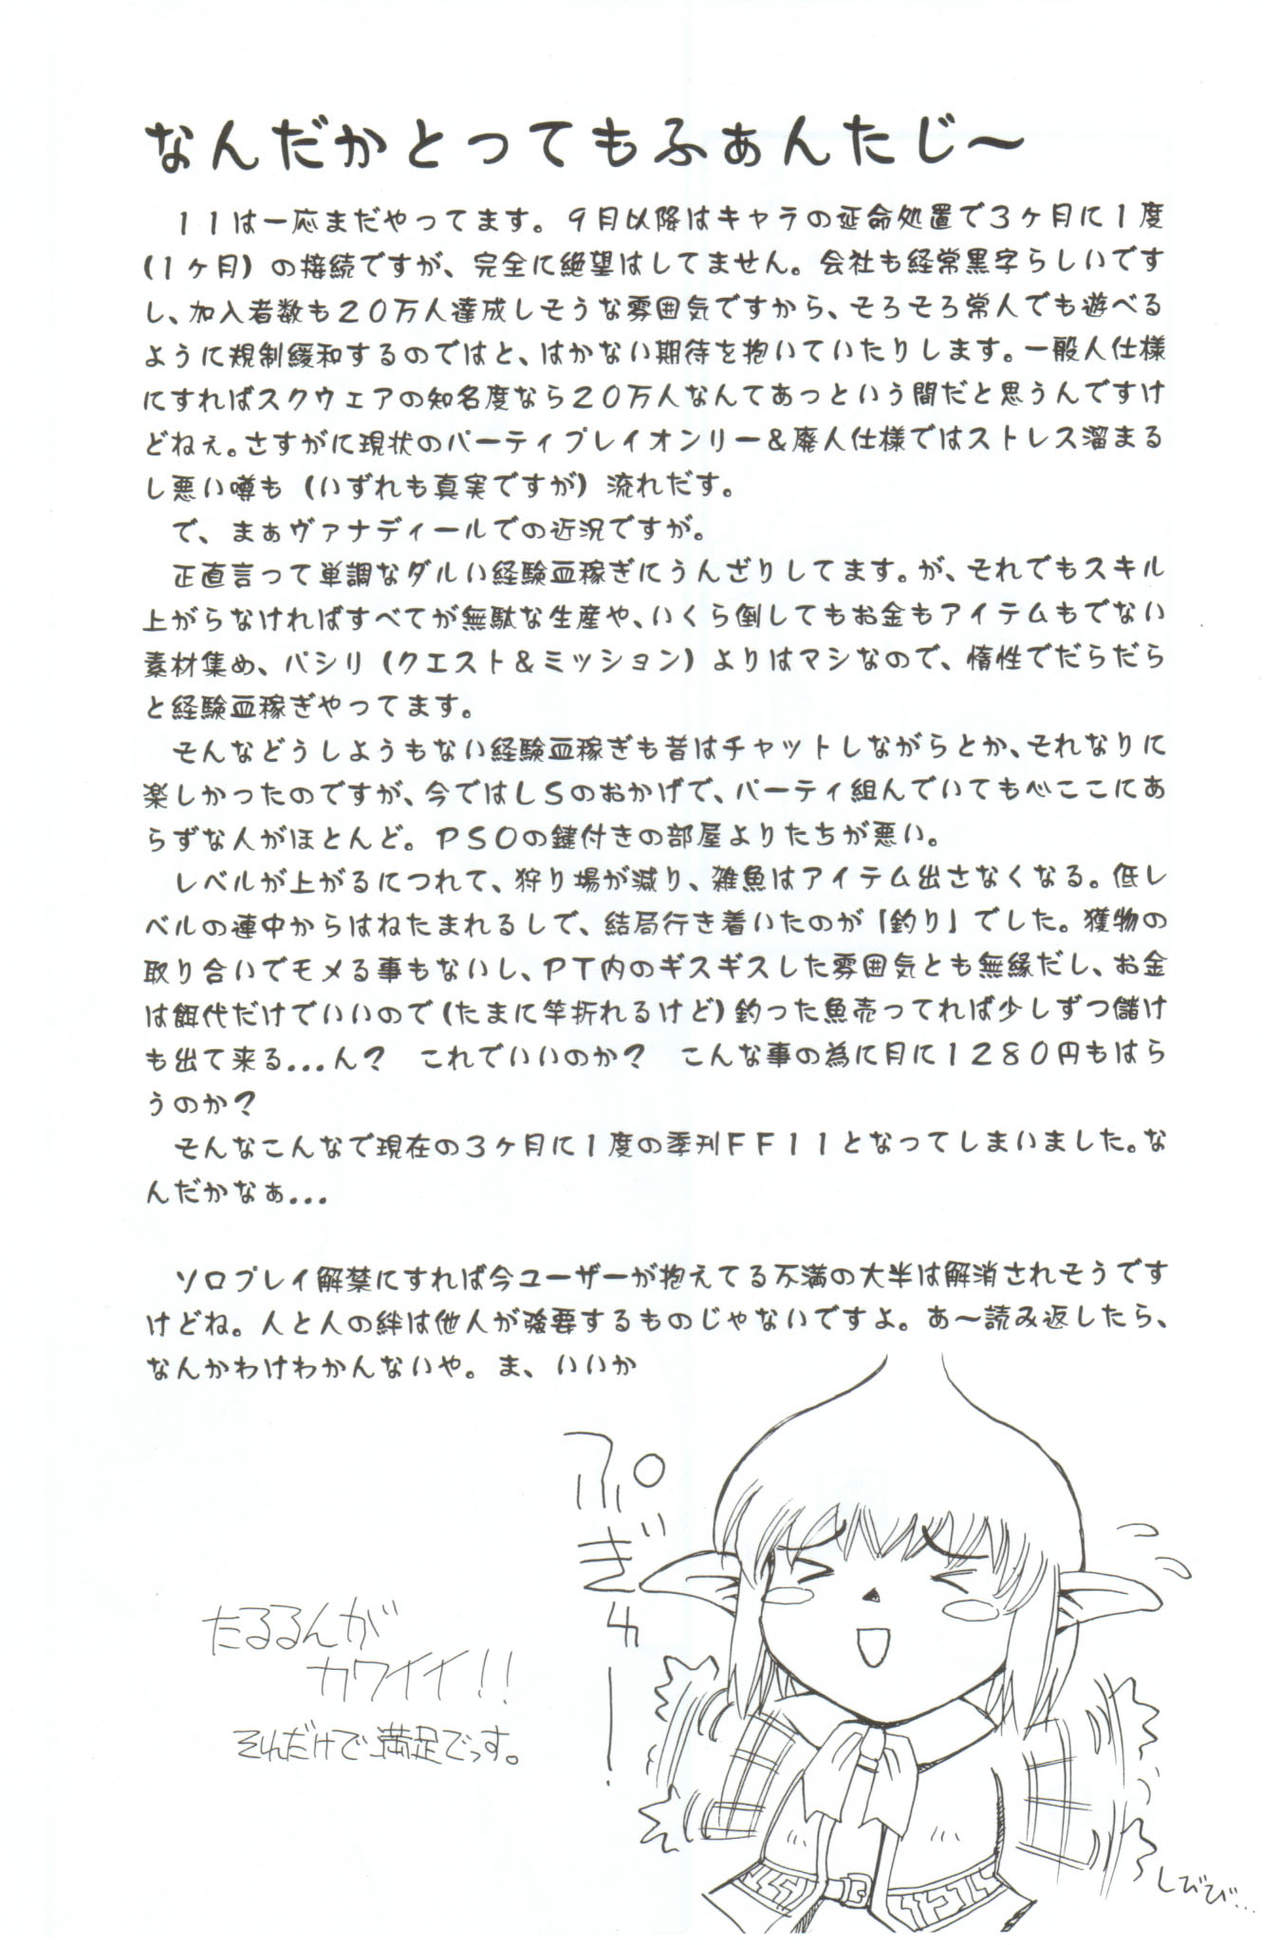 なんだかとってもふぁんたじ～
１１は一応まだやってます。９月以降はキャラの延命処置で３ヶ月に１度
(１ヶ月）の接続ですが、完全に絶望はしてません。会社も経常黒字らしいです
し、加入者数も２０万人達成しそうな雰囲気ですから、そろそろ常人でも遊べる
ように規制緩和するのではと、はかない期待を抱いていたりします。一般人仕様
にすればスクウェアの知名度なら２０万人なんてあっという間だと思うんですけ
どねぇ。さすがに現状のパーティプレイオンリー＆廃人仕様ではストレス溜まる
し悪い噂も（いずれも真実ですが）流れだす。
で、まぁヴァナディールでの近況ですが。
正直言って単調なダルい経験血稼ぎにうんざりしてます。が、それでもスキル
上がらなければすべてが無駄な生産や、いくら倒してもお金もアイテムもでない
素材集め、パシリ（クエスト＆ミッション）よりはマシなので、惰性でだらだら
と経験血稼ぎやってます。
そんなどうしようもない経験血稼ぎも昔はチャットしながらとか、それなりに
楽しかったのですが、今ではＬＳのおかげで、パーティ組んでいても心ここにあ
らずな人がほとんど。ＰＳＯの鍵付きの部屋よりたちが悪い。
レベルが上がるにつれて、狩り場が減り、雑魚はアイテム出さなくなる。低レ
ベルの連中からはねたまれるしで、結局行き着いたのが「釣り」でした。獲物の
取り合いでモメる事もないし、ＰＴ内のギスギスした雰囲気とも無縁だし、お金
は餌代だけでいいので(たまに竿折れるけど)釣った魚売ってれば少しずつ儲け
も出て来る...ん？　これでいいのか？　こんな事の為に月に１２８０円もはら
うのか？
そんなこんなで現在の３ヶ月に１度の季刊ＦＦ１１となってしまいました。な
んだかなぁ...
ソロプレイ解禁にすれば今ユーザーが抱えてる不満の大半は解消されそうです
けどね。人と人の絆は他人が強要するものじゃないですよ。あ～読み返したら、
なんかわけわかんないや。ま、いいか
ぷぎィー！
たるるんが
カワイイ！！
それだけで満足でっす。
しびび…